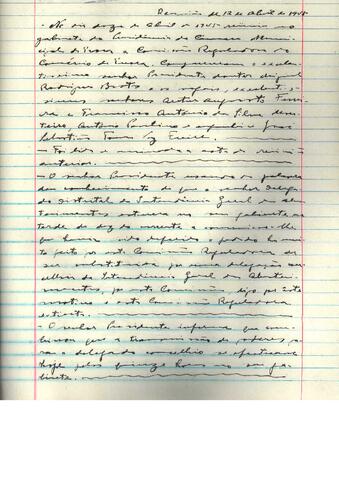 Reunião de 12 de Abril de 1945
- No dia doze de Abril de 1945 reuniu no
gabinete da Presidencia da Camara Muni-
cipal de Evora a Comissão Reguladora do
Comércio de Evora. Compareceram o excelen-
tissimo senhor Presidente doutor Miguel
Rodrigues Bastos e os vogais, excelentis-
simos senhores Artur Augusto
e Francisco António da Silva
António Paulino e José
Sebastião
- Foi lida e aprovada a acta da reunião
anterior.
- O senhor Presidente usando da palavra
deu conhecimento de que o senhor Delega-
do distrital da Intendência Geral dos Abas-
tecimentos esteve no seu gabinete na
tarde de doze a comunicar-lhe
que havia sido deferido o pedido ha muito
feito por esta Comissão Reguladora de
ser substituida por uma delegação con-
celhia da Intendência Geral dos Abasteci-
mentos, por este
motivo esta Comissão Reguladora
extinta.
- O senhor Presidente informa que com-
binou que a transmissão de poderes
para a delegação concelhia se efectuava
hoje pelas quinze horas no seu ga-
binete.